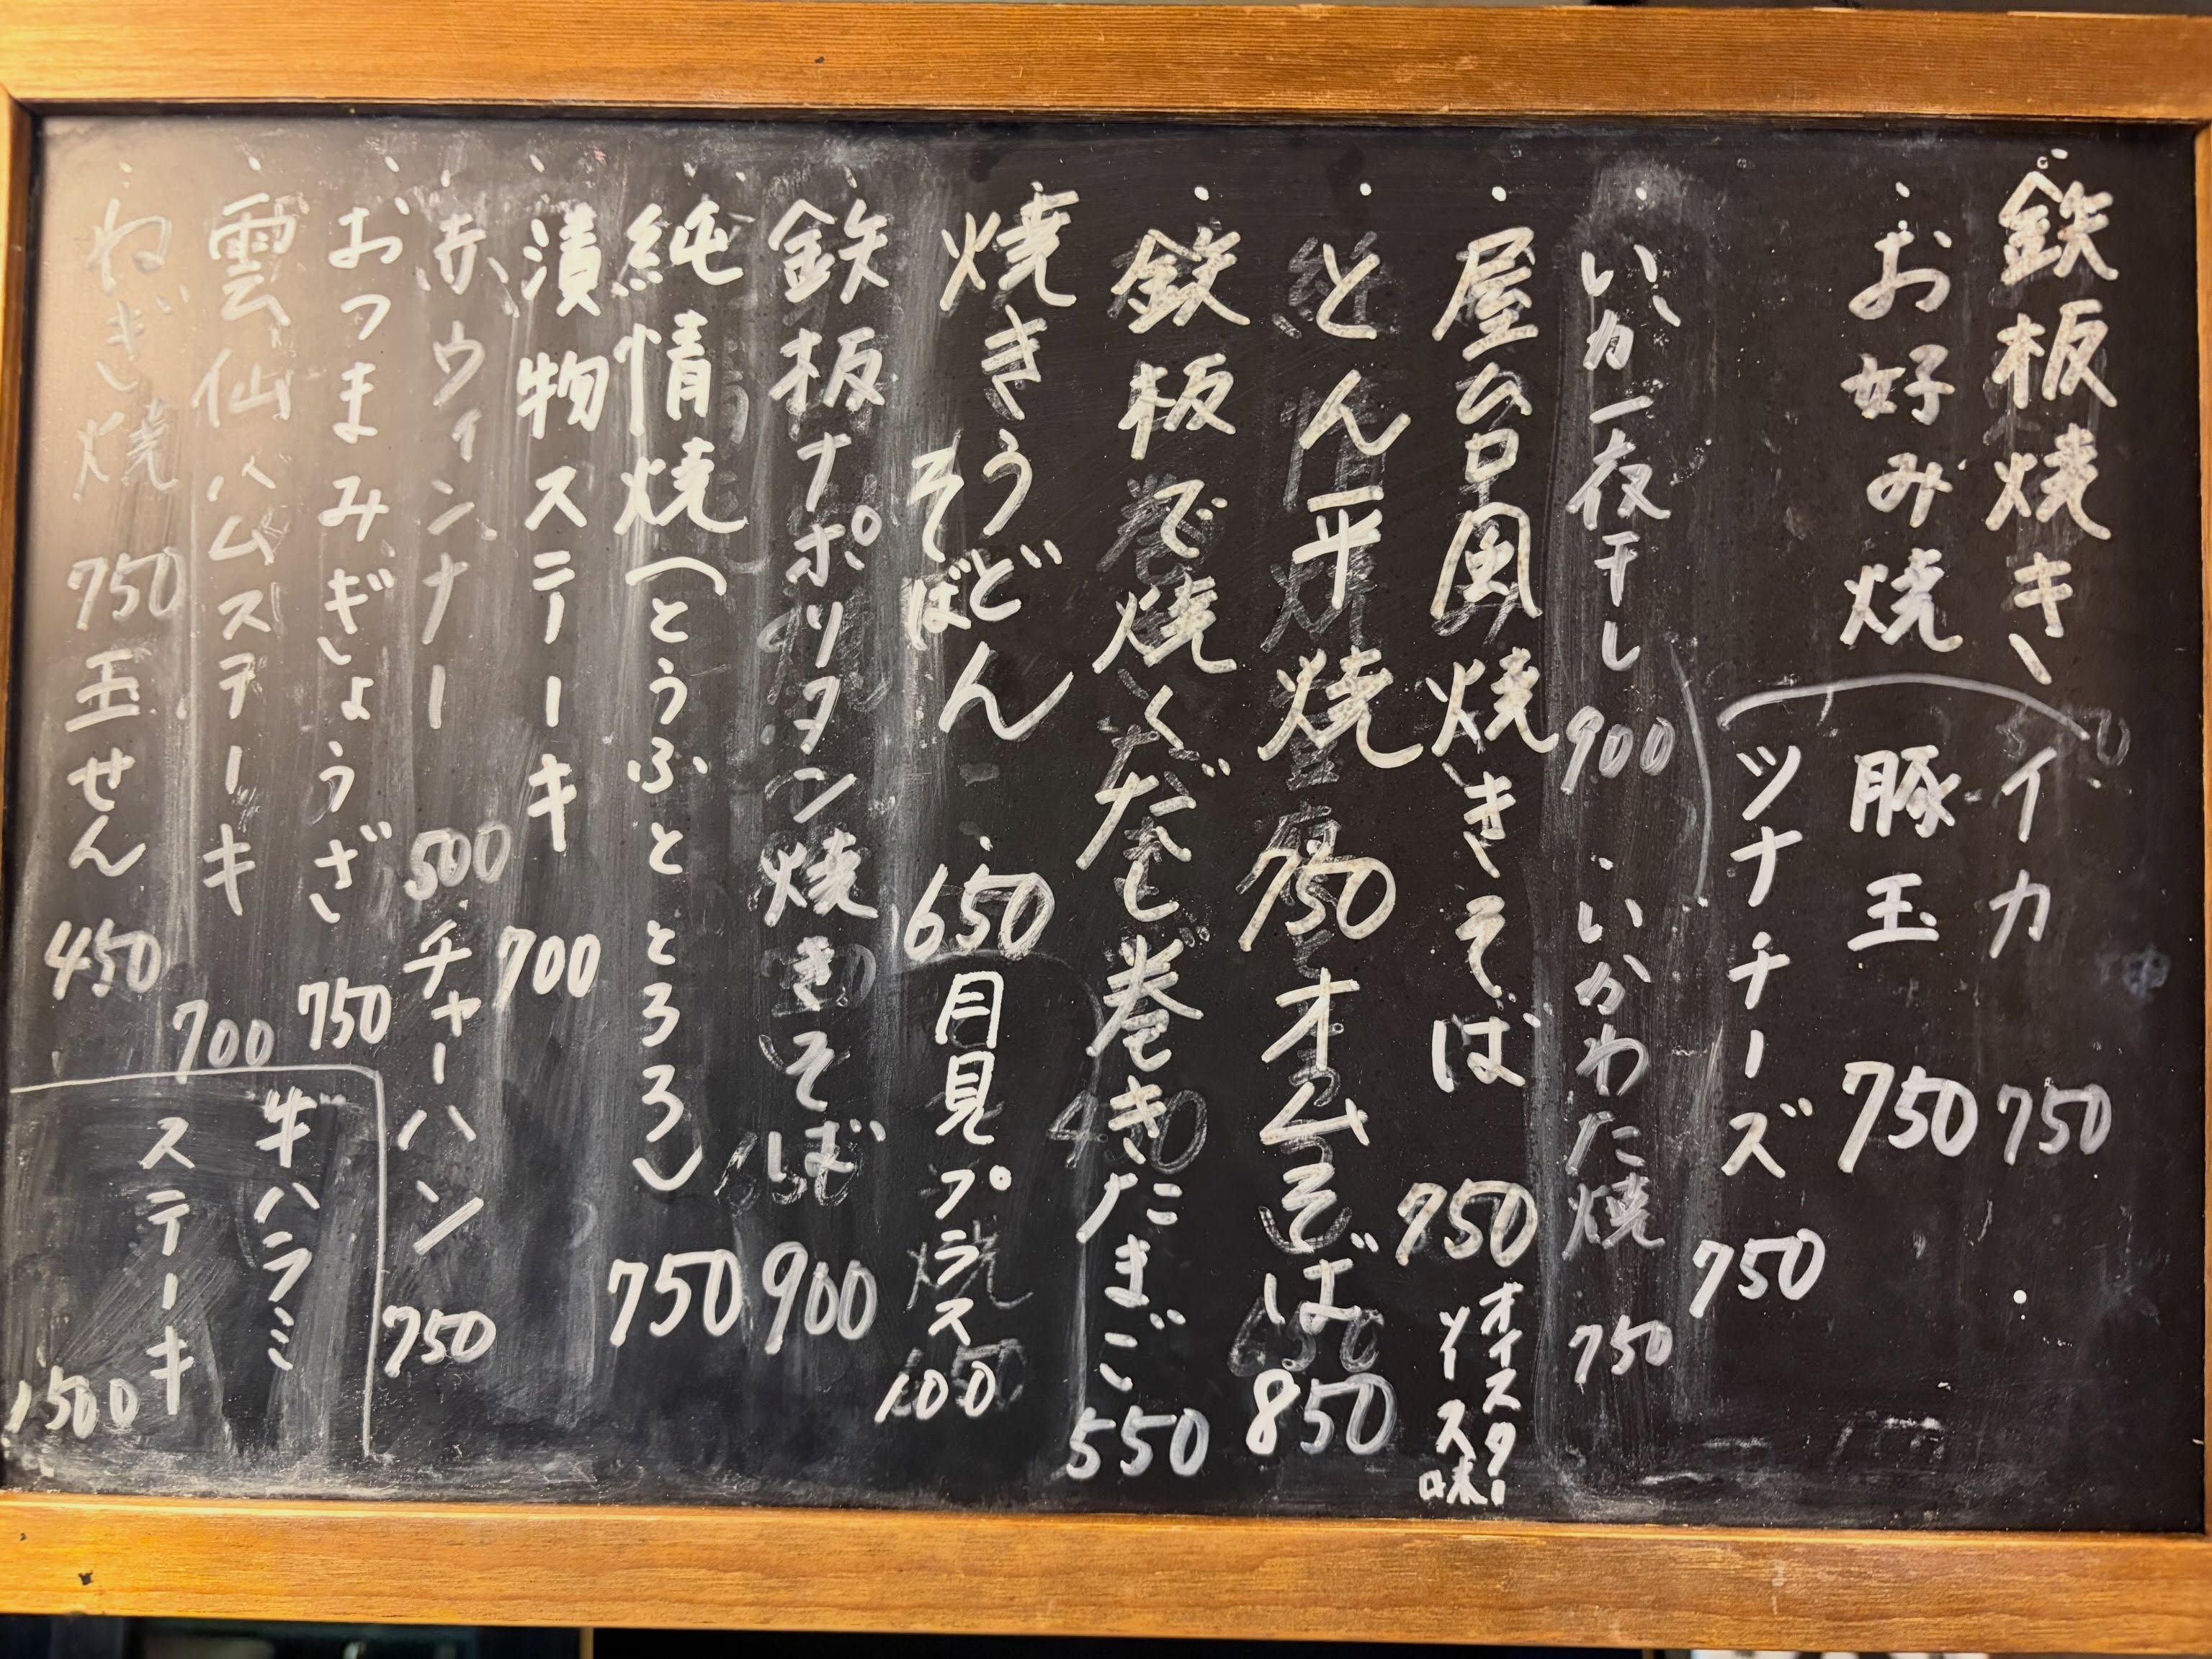 鉄板焼き
お好み焼
イカ 750
豚玉 750
ツナチーズ 750
いか一夜干し 900
いかわた焼 750
屋台風焼きそば 750
オイスター
ソース味
とん平焼 750
オムそば 850
鉄板で焼くだし巻きたまご 550
焼きうどん
そばめし 650
月見プラス 100
鉄板ナポリタン焼きそば 900
純情焼(とうふととろろ) 750
漬物ステーキ 700
赤ウィンナー 500
チャーハン 750
おつまみぎょうざ 750
雲仙ハムステーキ 700
ねぎ焼 750
玉せん 450
牛ハラミ
ステーキ
1500